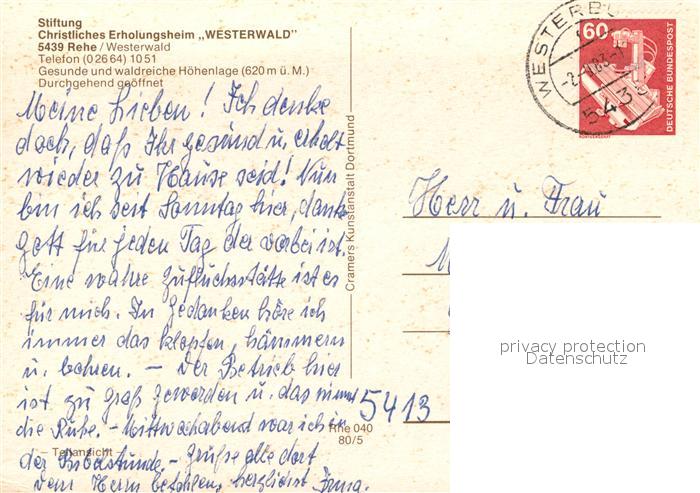 Stiftung
Christliches Erholungsheim „WESTERWALD"
5439 Rehe / Westerwald
Telefon (0 26 64) 10 51
Gesunde und waldreiche Höhenlage (620 m ü. M.)
Durchgehend geöffnet
Meine Lieben! Ich denke
doch, daß Ihr gesund u. erholt
wieder zu Hause seid! Nun
bin ich seit Sonntag hier, danke
Gott für jeden Tag der vorbei ist.
Eine wahre Zufluchsstätte ist es
für mich. In Gedanken höre ich
immer das klopfen, hämmern
u. bohren. – Der Betrieb hier
ist zu groß geworden u. das nimmt
die Ruhe. – Mittwochabend war ich in
der Bibelstunde. – Grüße alle dort
dem Herrn befohlen, herzlichst Irma.
– Teilansicht
Cramers Kunstanstalt Dortmund
Rhe 040
80/5
WESTERBU
5439
60
DEUTSCHE BUNDESPOST
RÖNTGENGERÄT
Herr u. Frau
5413
privacy protection
Datenschutz